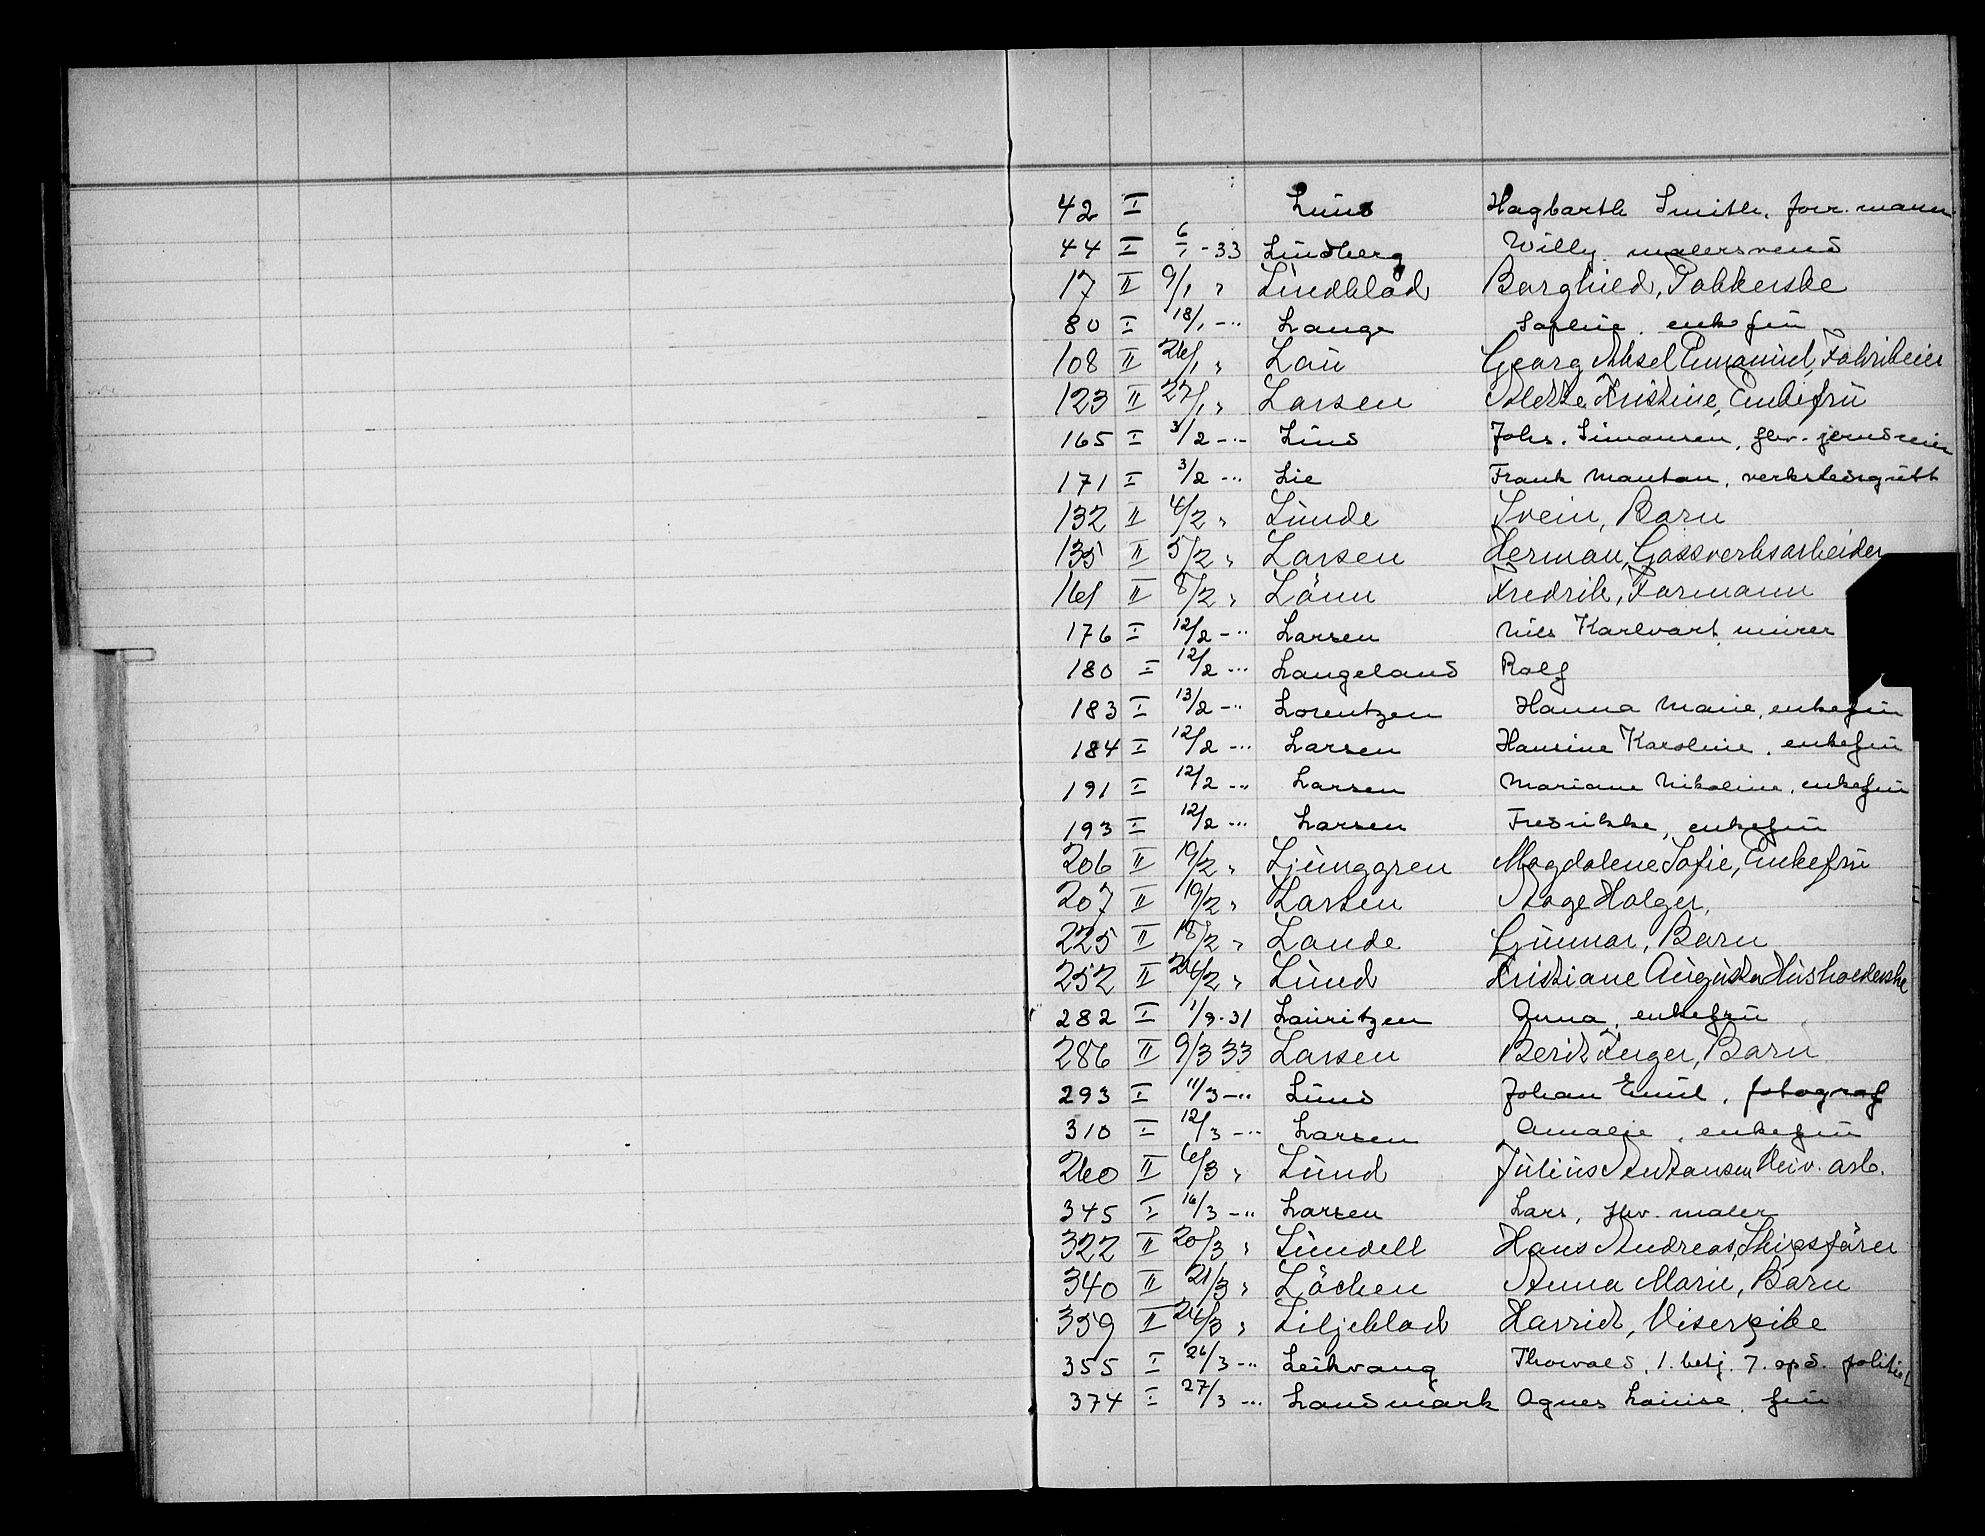 42 I Lund Hagbarth Smith, forr. mann
44 I 6/1 - 33 Lindberg Willy, malersvend
17 II 9/1 " Lindblad Borghild, Pakkerske
80 I 18/1 - " Lange Sophie, enkefru
108 II 24/1 " Lau Georg Aksel Emanuel, Fabrikeier
123 II 27/1 " Larsen Mette Kristine, Enkefru
165 I 3/2 - " Lind Johs. Simonsen, fhv.
171 I 3/2 - " Lie Frank Mantau, verkstedsgutt
132 II 4/2 " Lunde Svein, Barn
135 II 5/2 " Larsen Herman, Gassverksarbeider
161 II 8/2 " Lönn Fredrik, Formann
176 I 12/2 - " Larsen Nils Karlvart, murer
180 I 12/2 - " Langeland Rolf
183 I 13/2 - " Lorentzen Hanna Marie, enkefru
184 I 12/2 - " Larsen Hansine Karoline, enkefru
191 I 12/2 - " Larsen Mariane Nikoline, enkefru
193 I 12/2 - " Larsen Fredrikke, enkefru
206 II 19/2 " Ljunggren Magdalene Sofie, Enkefru
207 II 19/2 " Larsen Aage Holger,
225 II 18/2 " Lande Gunnar, Barn
252 II 24/2 " Lund Kristiane Augusta Husholderske
282 I 1/3 - 31 Lauritzen Anna, enkefru
286 II 9/3 33 Larsen Berit Inger, Barn
293 I 11/3 - " Lund Johan Emil, fotograf
310 I 12/3 - " Larsen Amalie, enkefru
260 II 6/3 " Lund Julius Antonsen arb.
345 I 16/3 - " Larsen Lars, fhv. maler
322 II 20/3 " Lundell Hans Andreas, Skipsförer
340 II 21/3 " Löchen Anna Marie, Barn
359 II 24/3 " Liljeblad Harriet, Viserpike
355 I 26/3 - " Leikvang Thorvald, 1. betj. 7. opd. politiet
374 I 27/3 - " Landsmark Agnes Louise, fru